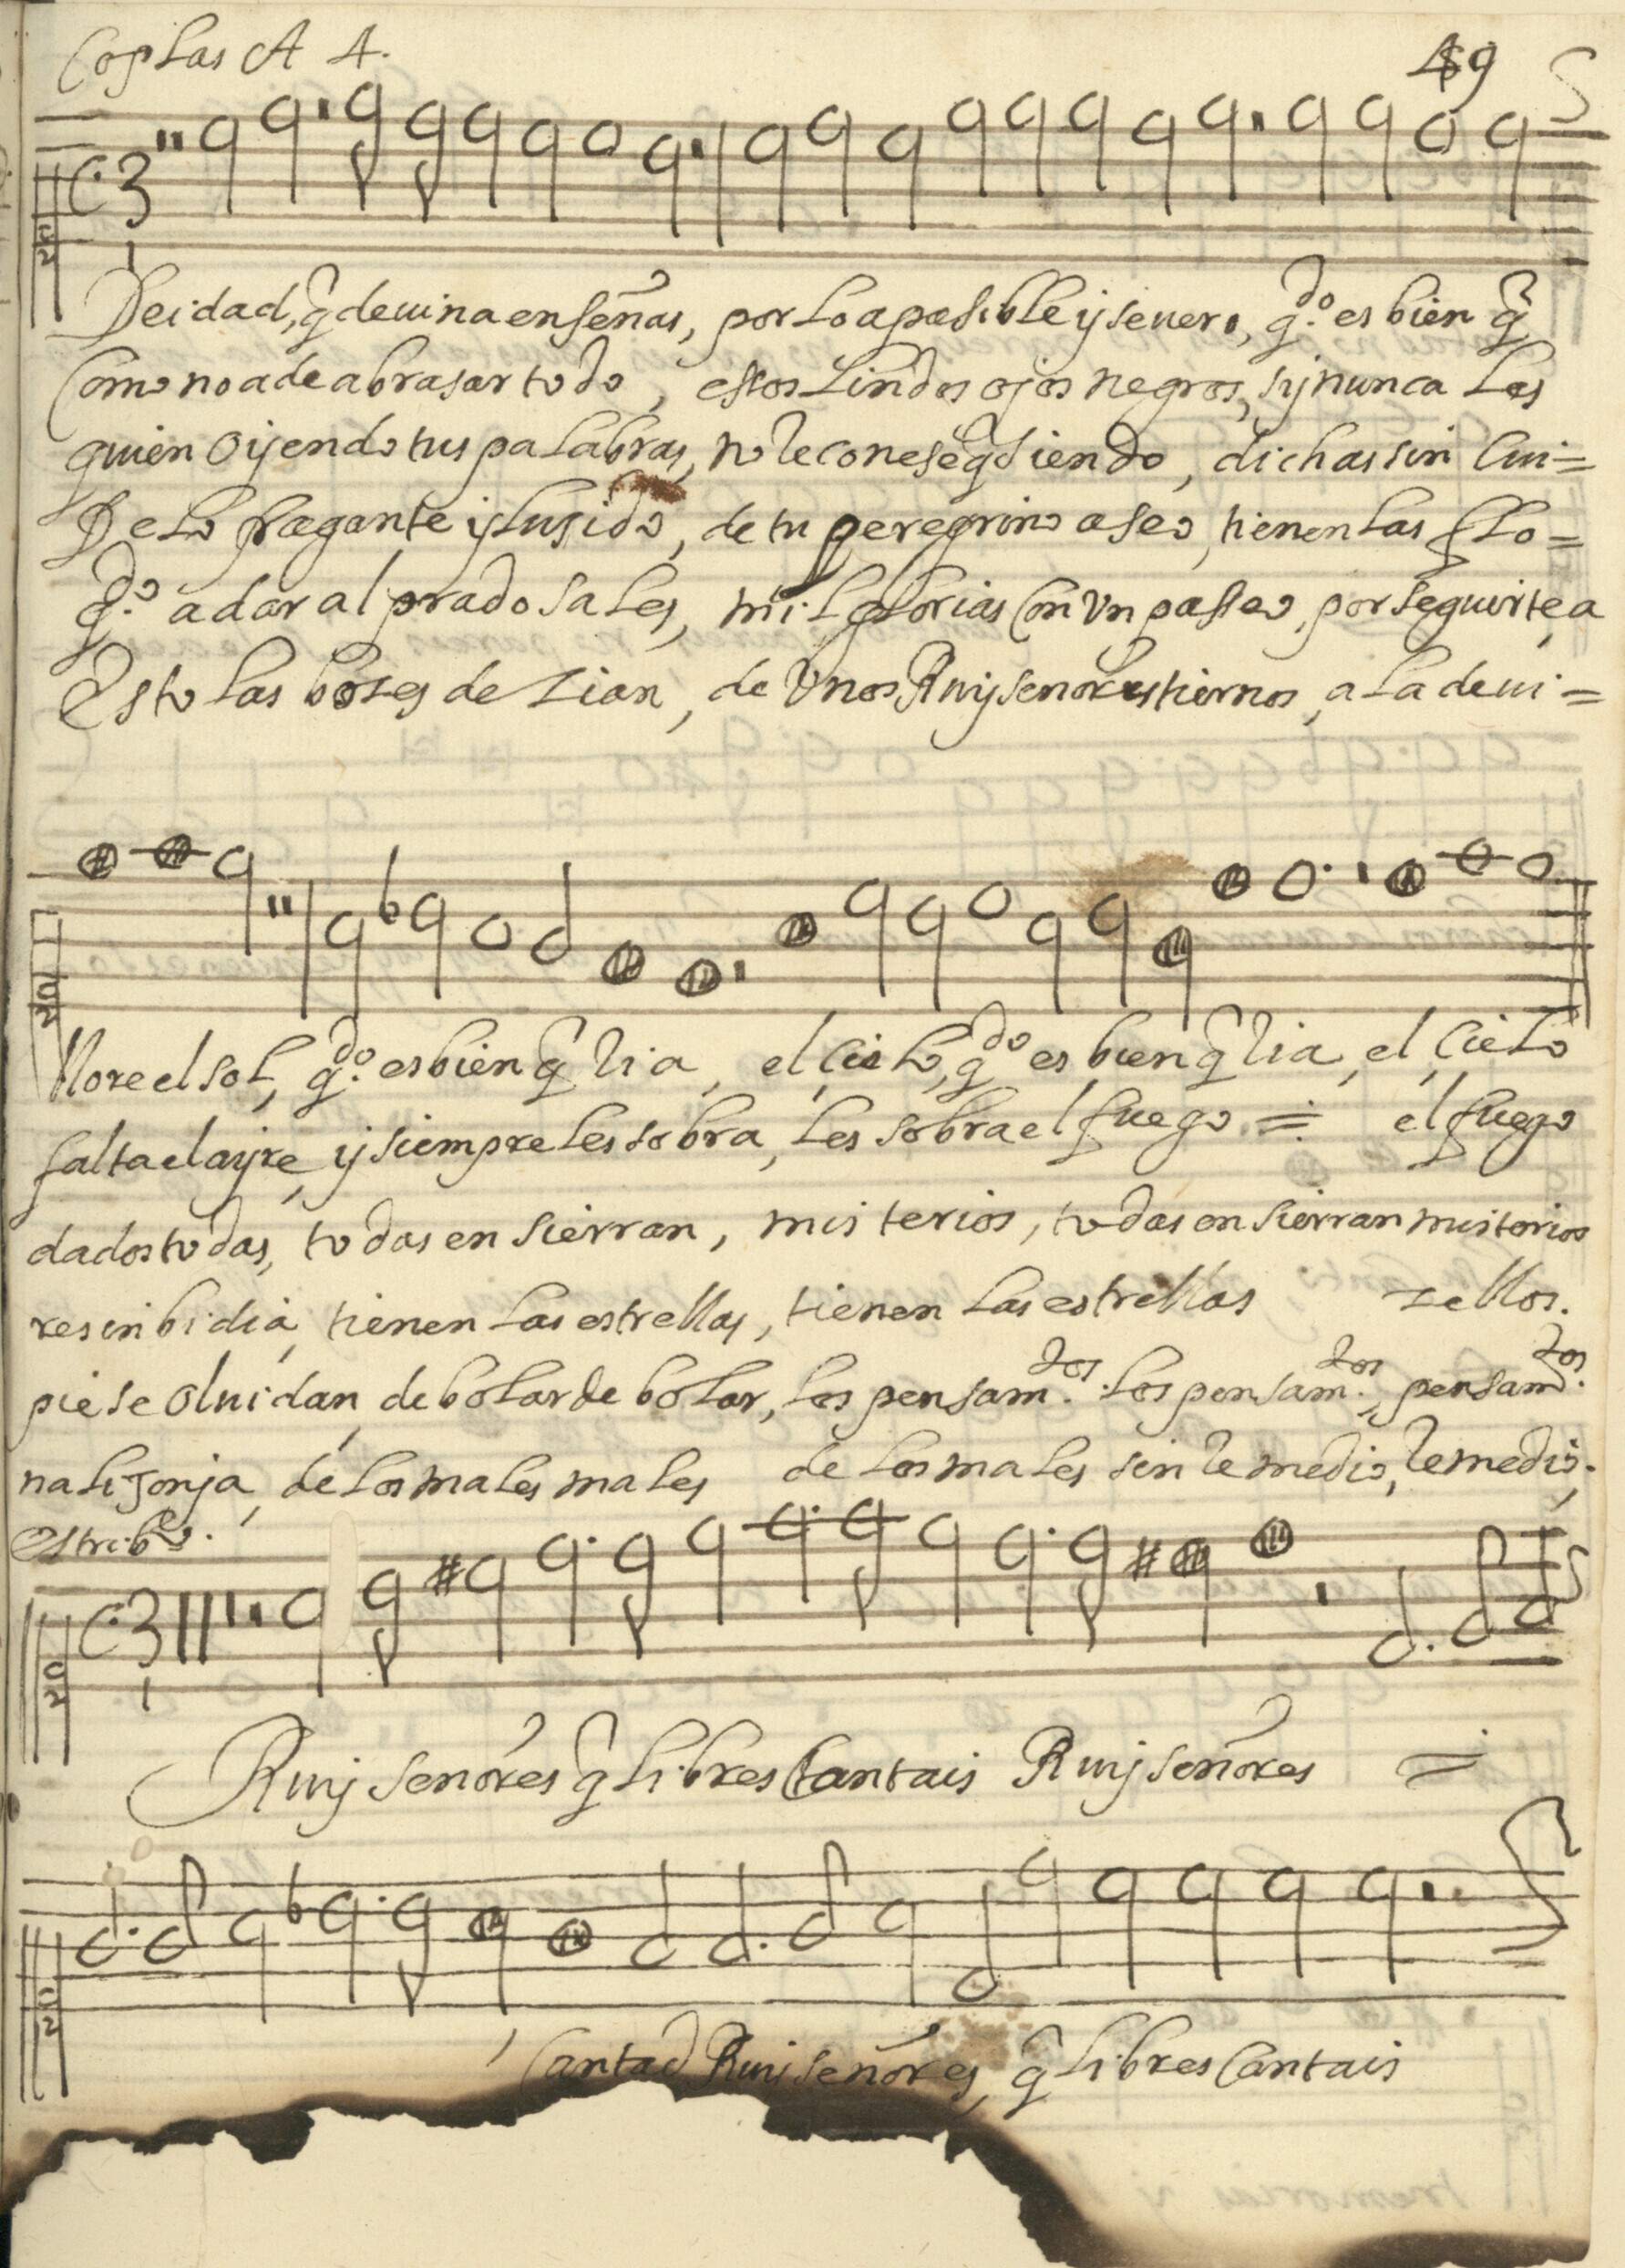 Coplas A 4.
49
Deidad, q̃ deuina enseñas, por lo apasible ij seuero, q.do es bien q̃
Como no a de abrasar todo, essos lindos ojos negros, sij nunca les
quien oijendo tus palabras, no le
dichas sin Cui=
De lo fragante ij lusido, de tu peregrino aseo, tienen las flo=
q.do a dar al prado sales, mil glorias Con Vn passeo, por seguirte, a
Esto las bozes dezian, de Vnos Ruijseñores tiernos, a la deui=
llore el sol, q.do es bien q̃ ria, el, cielo, q.do es bien q̃ ria, el, cielo
falta el aijre, ij siempre les sobra, les sobra el fuego = el fuego
dados todas, todas ensierran, misterios, todas ensierran misterios
res inbidia, tienen las estrellas, tienen las estrellas zellos.
pie se oluidan, de bolar de bolar, los pensam.tos los pensam.tos, pensam.tos
na lisonja, de los males males de los males sin remedio, remedio.
estribo.
Ruijseñores q̃ libres Cantais Ruijseñores =
Cantad Ruijseñores, q̃ libres Cantais